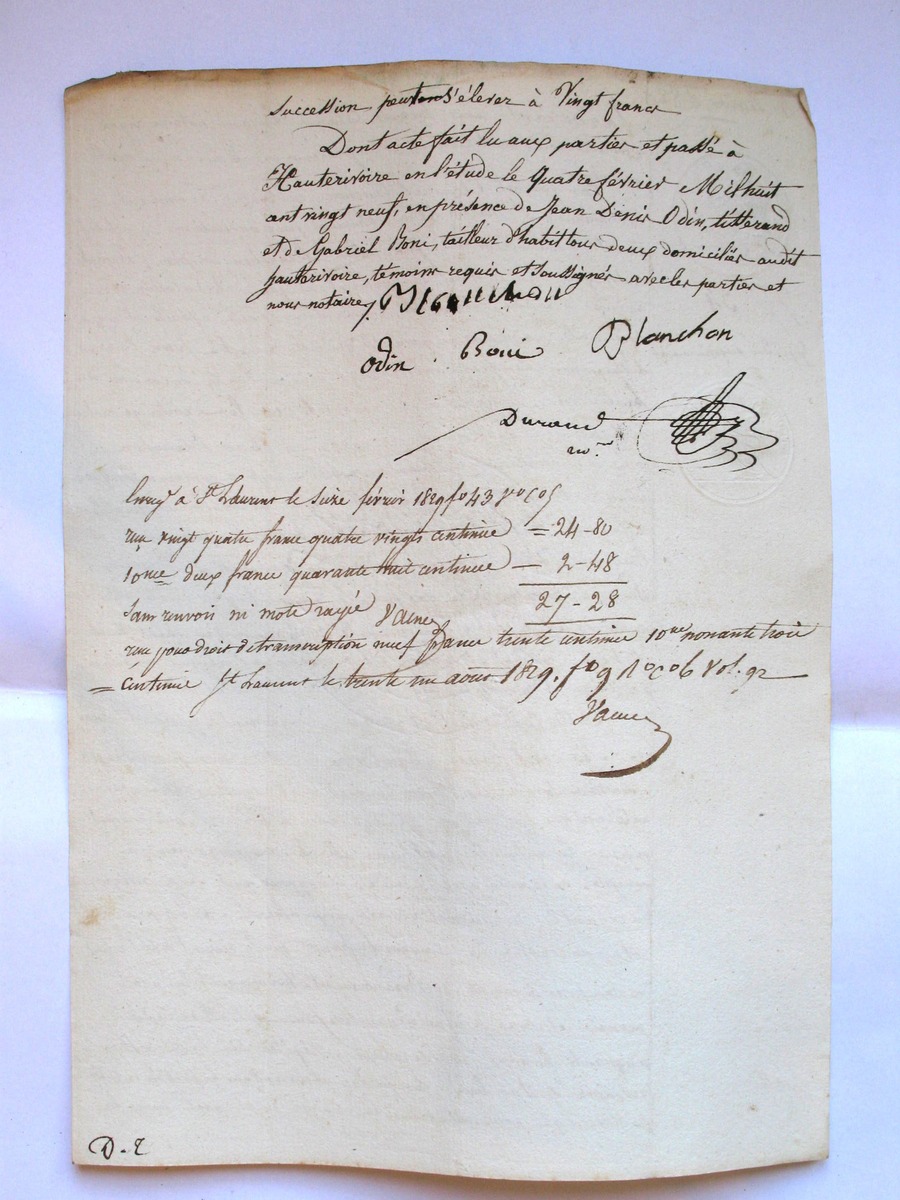 Succession peuvent s'élever à Vingt francs
Dont acte fait lu aux parties et passé à
Hauterivoire en l'étude le quatre février Mil huit
cent vingt neuf, en présence de Jean Denis Odin, tisserand
et de Gabriel Boni, tailleur d'habit tous deux domiciliés audit
hauterivoire, témoins requis et soussignés avec les parties et
nous notaire,
Odin Boni Planchon
Durand
nore
Enregé à St Laurent le seize février 1829 fo 43 Vo Co 5
reçu vingt quatre francs quatre vingts centimes = 24-80
10me deux francs quarante huit centimes — 2-48
Sans renvoi ni mots rayés 27-28
reçu pour droit de transcription neuf francs trente centimes 10me nonante trois
= centimes St Laurent le trente un aout 1829. fo 9 Ro Co 6 Vol. 92
D. E